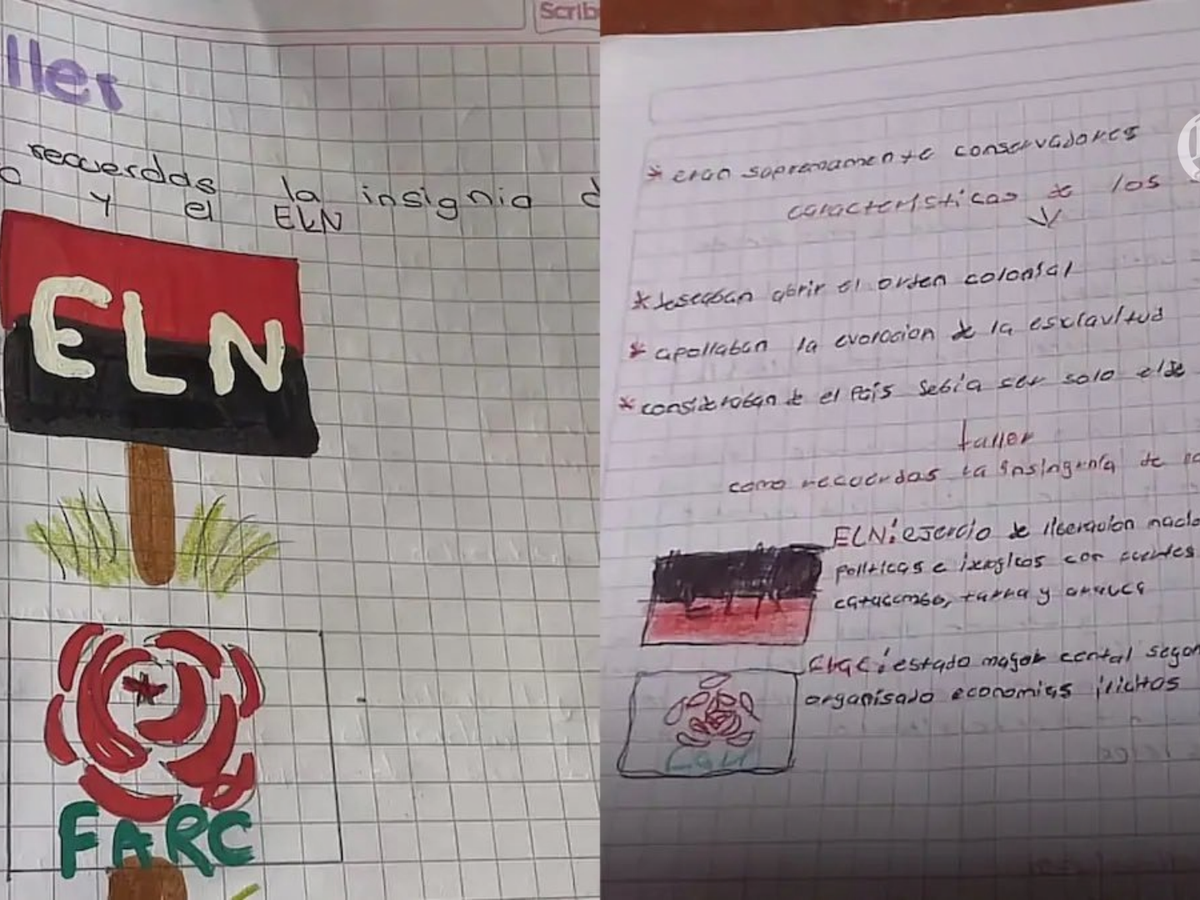 Scrib
ller
recuerdas la insignia d
o y el ELN
ELN
FARC
* eran sopremamente conservadores
caracteristicas de los
* deseaban abrir el orden colonial
* apollaban la evorocion de la esclavitud
* considerotan el País debia ser solo
taller
como recuerdas la insingenia de
ELN: ejercio de liberacion nacio
politicas e con
catacombo, tarra y arauca
estado mayor central segon
organisado economias ilichos